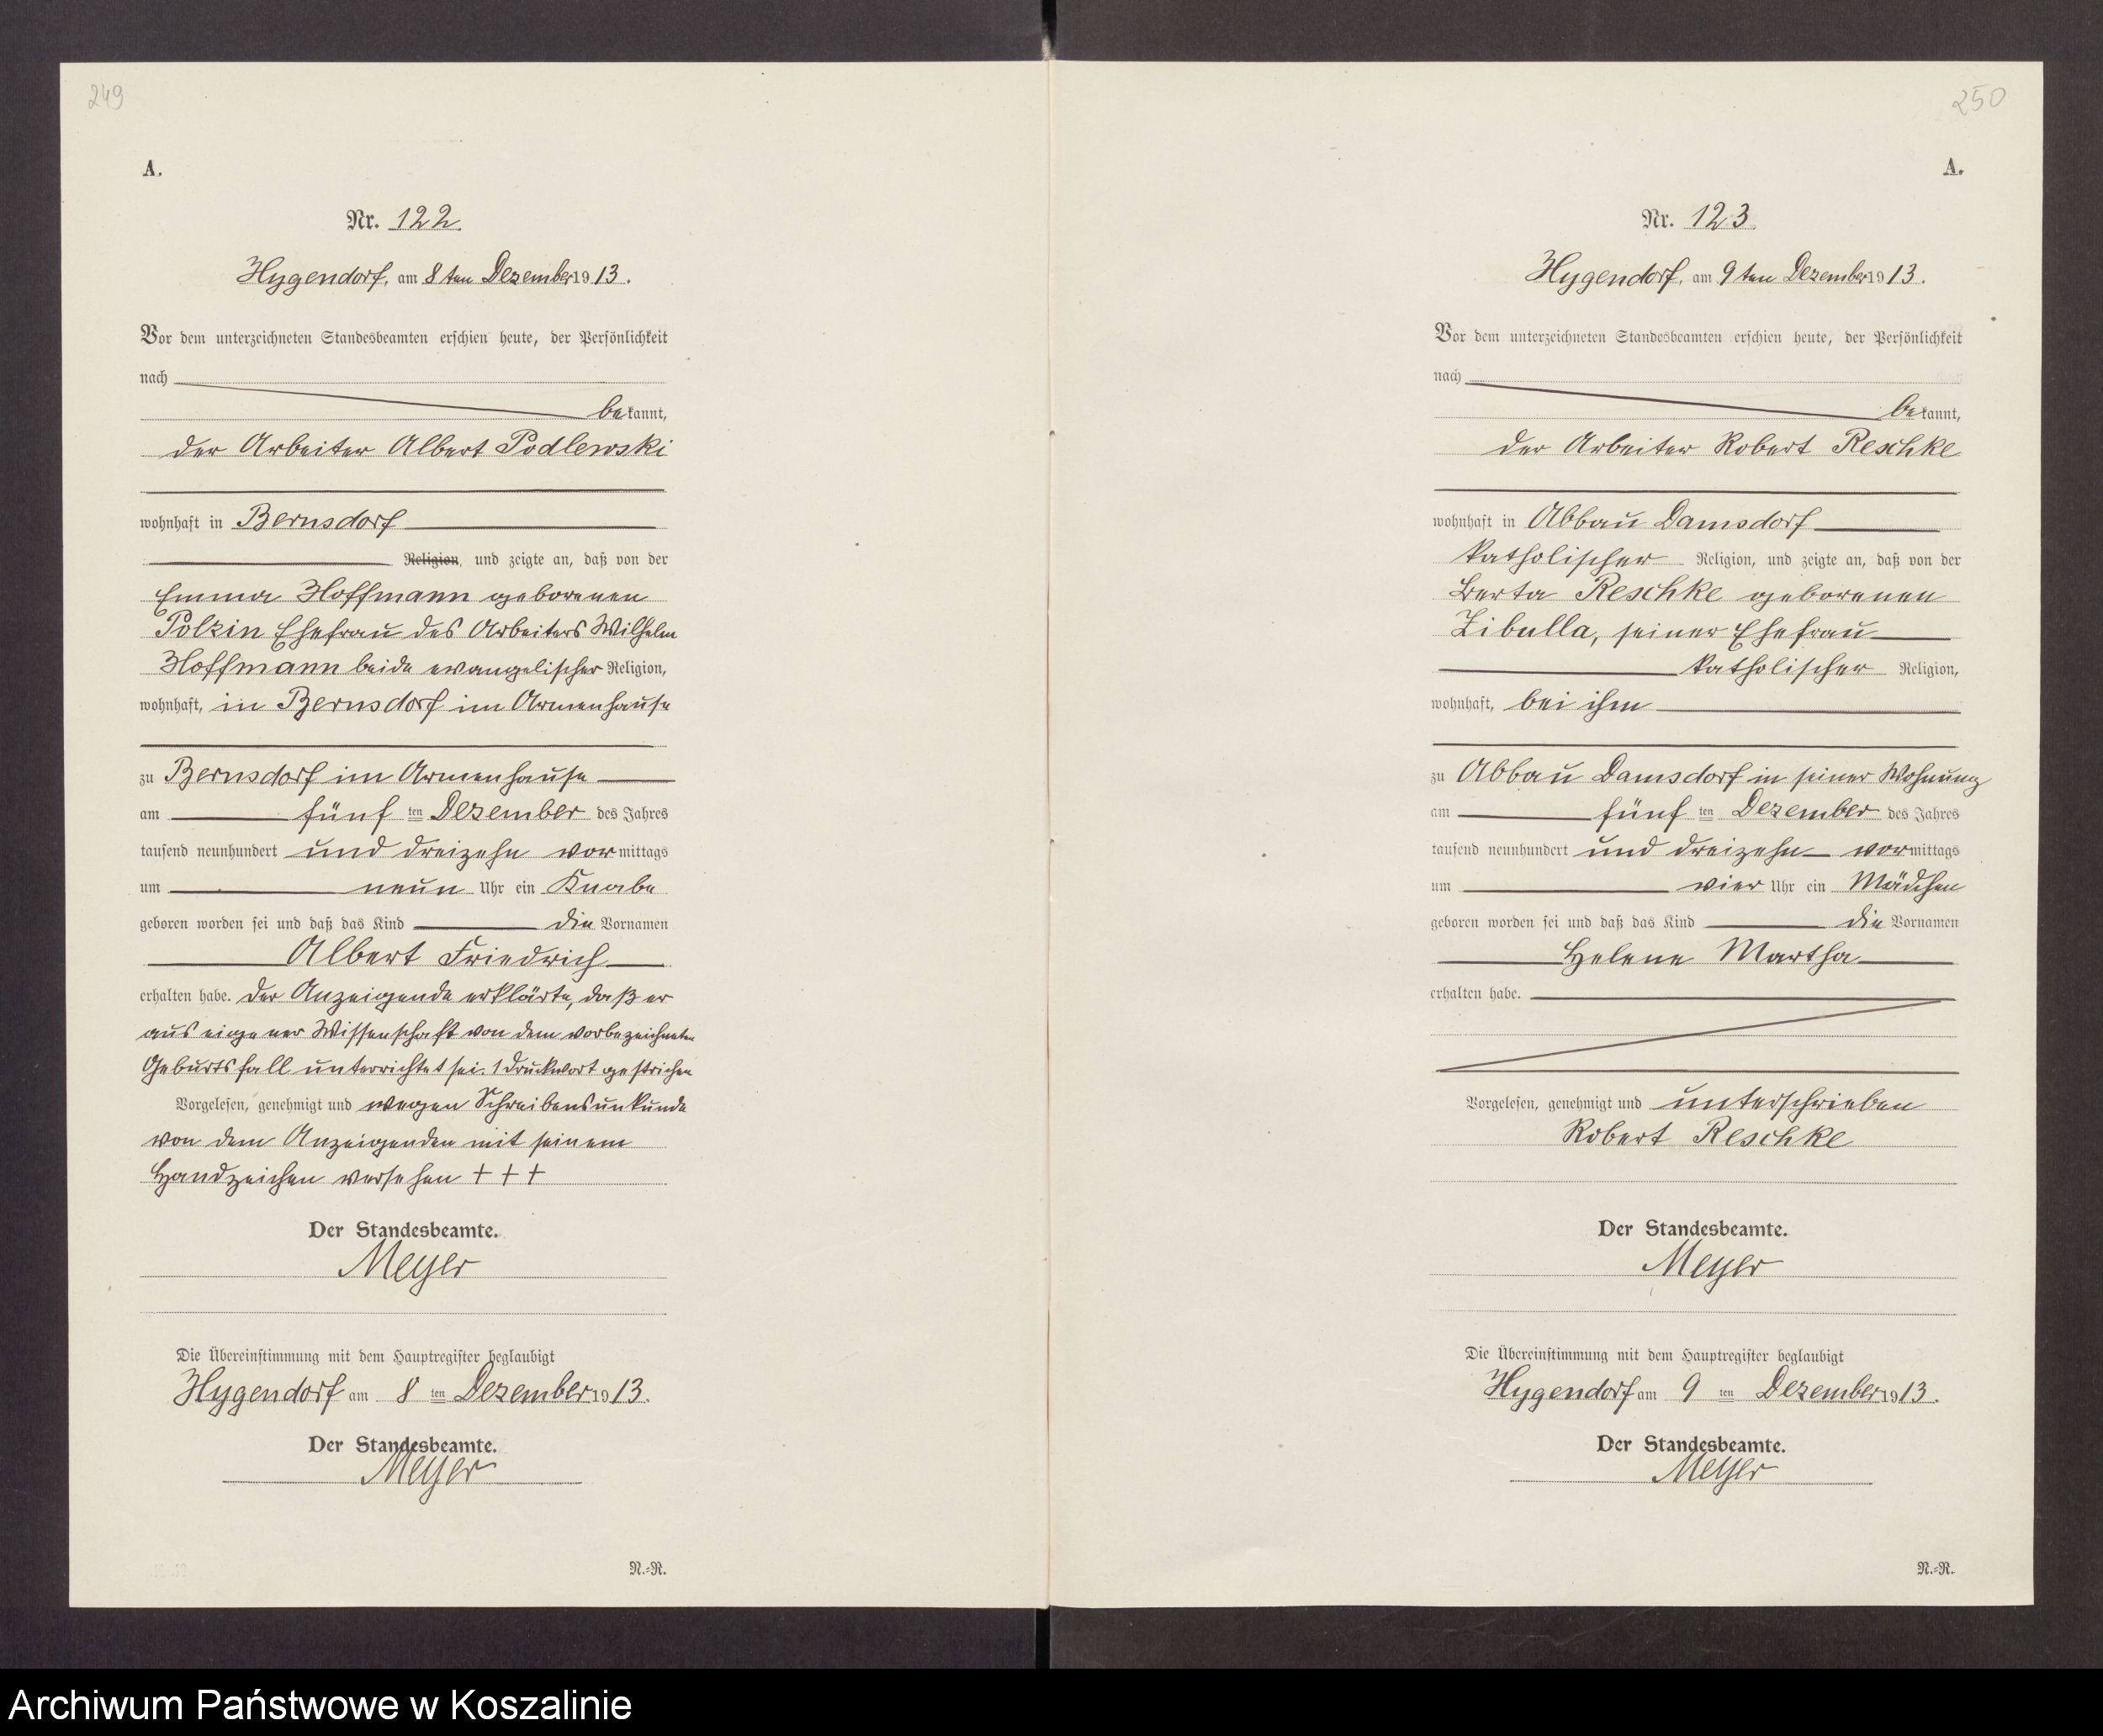 249
A.
Nr. 122.
Hygendorf, am 8ten Dezember 1913.
Vor dem unterzeichneten Standesbeamten erschien heute, der Persönlichkeit
nach
bekannt,
der Arbeiter Albert Podlewski
wohnhaft in Bernsdorf
Religion, und zeigte an, daß von der
Emma Hoffmann geborenen
Polzin Ehefrau des Arbeiters Wilhelm
Hoffmann beide evangelischer Religion,
wohnhaft, in Bernsdorf im Armenhause
zu Bernsdorf im Armenhause
am fünf ten Dezember des Jahres
tausend neunhundert und dreizehn vormittags
um neun Uhr ein Knabe
geboren worden sei und daß das Kind die Vornamen
Albert Friedrich
erhalten habe. Der Anzeigende erklärte, daß er
aus eigener Wissenschaft von dem vorbezeichneten
Geburtsfall unterrichtet sei. 1 Druckwort gestrichen
Vorgelesen, genehmigt und wegen Schreibensunkunde
von dem Anzeigenden mit seinem
Handzeichen versehen + + +
Der Standesbeamte.
Meyer
Die Übereinstimmung mit dem Hauptregister beglaubigt
Hygendorf am 8 ten Dezember 1913.
Der Standesbeamte.
Meyer
N.=R.
250
A.
Nr. 123.
Hygendorf, am 9ten Dezember 1913.
Vor dem unterzeichneten Standesbeamten erschien heute, der Persönlichkeit
nach
bekannt,
der Arbeiter Robert Reschke
wohnhaft in Abbau Damsdorf
katholischer Religion, und zeigte an, daß von der
Berta Reschke geborenen
Zibulla, seiner Ehefrau
katholischer Religion,
wohnhaft, bei ihm
zu Abbau Damsdorf in seiner Wohnung
am fünf ten Dezember des Jahres
tausend neunhundert und dreizehn vormittags
um vier Uhr ein Mädchen
geboren worden sei und daß das Kind die Vornamen
Helene Martha
erhalten habe.
Vorgelesen, genehmigt und unterschrieben
Robert Reschke
Der Standesbeamte.
Meyer
Die Übereinstimmung mit dem Hauptregister beglaubigt
Hygendorf am 9 ten Dezember 1913.
Der Standesbeamte.
Meyer
N.=R.
Archiwum Państwowe w Koszalinie